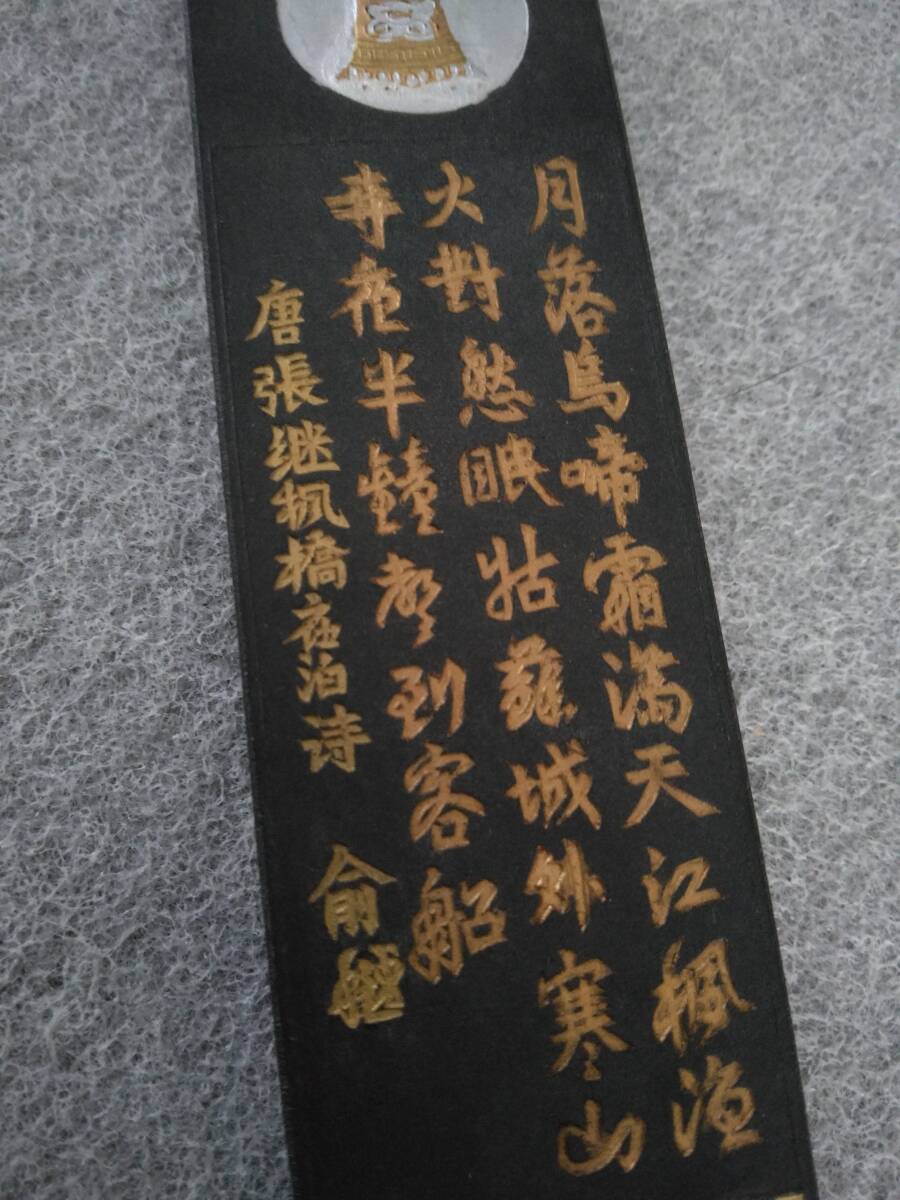 月落烏啼霜满天江楓渔
火對愁眠姑蘇城外寒山
寺夜半鐘聲到客船
唐張继枫橋夜泊诗 俞樾